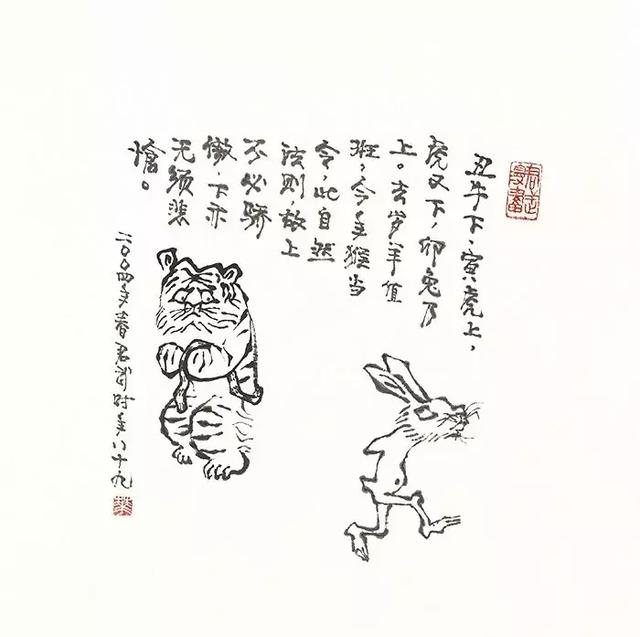 君武
漫畫
丑牛下、寅虎上，
虎又下，卯兔乃
上。去岁羊值
班，今年猴当
令，此自然
法则，故上
不必骄
傲，下亦
无须悲
怆。
二〇〇四年春君武时年八十九